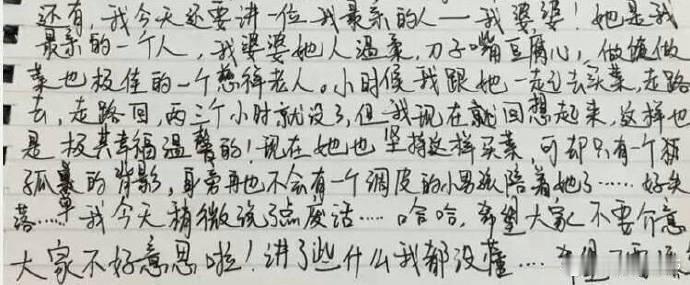 还有，我今天还要讲一位我最亲的人——我婆婆！她是我
最亲的一个人，我婆婆她人温柔，刀子嘴豆腐心，做饭做
菜也极佳的一个慈祥老人。小时候我跟她一起走去买菜，走路
去，走路回，两三个小时就没了，但我现在就回想起来，这样也
是极其幸福温馨的！现在她也坚持这样买菜，可却只有一个
孤单的背影，身旁再也不会有一个调皮的小男孩陪着她了……好失
落……我今天稍微说了点废话……哈哈，希望大家不要介意
大家不好意思啦！讲了些什么我都没懂……希望